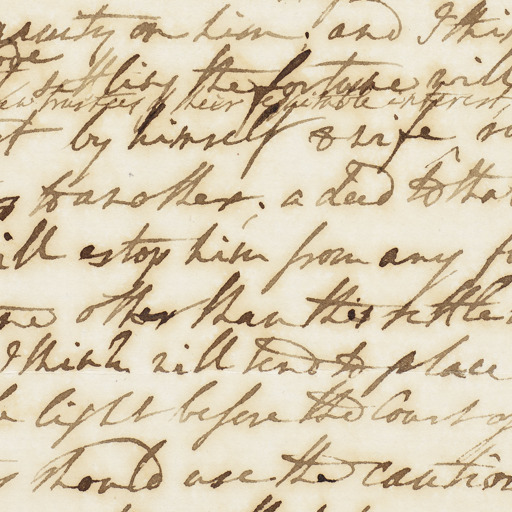 on him; and I
settling the fortune will
trustees their equitable interest,
by himself & wife
to another; a deed to that
will estop him from any
other than this settle
I think will tend to place
light before the Court
should use the caution